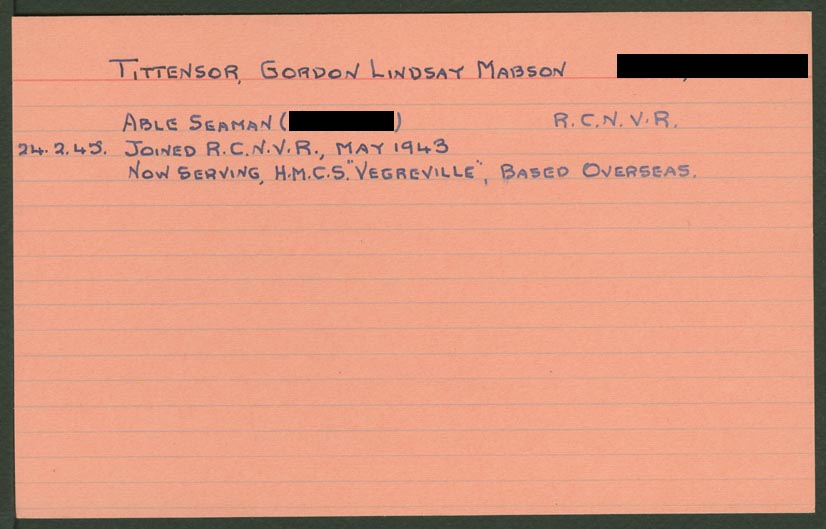 TITTENSOR, GORDON LINDSAY MABSON
ABLE SEAMAN ( ) R.C.N.V.R.
24.2.45. JOINED R.C.N.V.R., MAY 1943
NOW SERVING, H.M.C.S. "VEGREVILLE", BASED OVERSEAS.